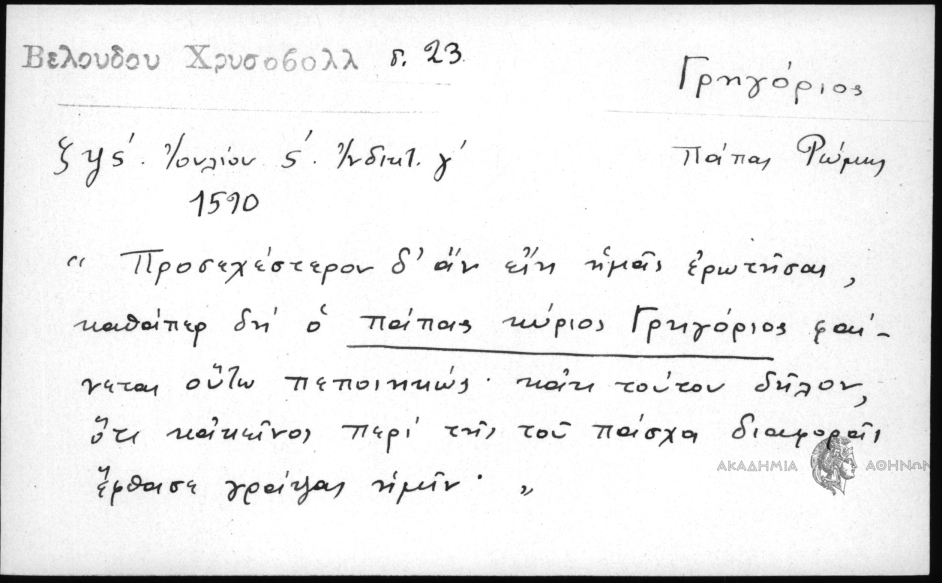 Βελούδου Χρυσοβολλ σ. 23
Γρηγόριος
Πάπας Ρώμης
ζϞς΄. Ἰουλίου ς΄. Ἰνδικτ. γ΄
1590
“ Προσεχέστερον δ' ἄν εἴη ἡμᾶς ἐρωτῆσαι,
καθάπερ δή ὁ πάπας κύριος Γρηγόριος φαί-
νεται οὕτω πεποιηκώς· κἀκ τούτου δῆλον,
ὅτι κἀκεῖνος περί τῆς τοῦ πάσχα διαφορᾶς
ἔφθασε γράψας ἡμῖν· „
ΑΚΑΔΗΜΙΑ ΑΘΗΝΩΝ